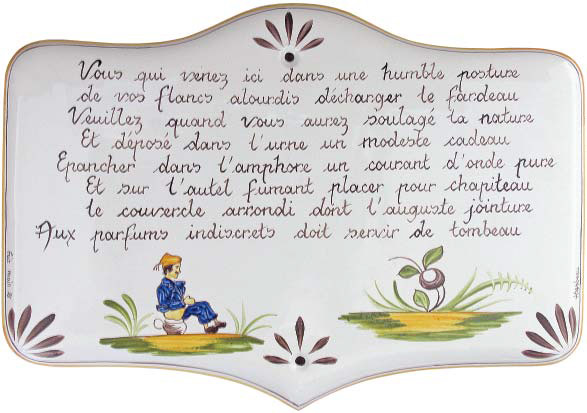 Vous qui venez ici dans une humble posture
de vos flancs alourdis décharger le fardeau
Veuillez quand vous aurez soulagé la nature
Et déposé dans l'urne un modeste cadeau
Epancher dans l'amphore un courant d'onde pure
Et sur l'autel fumant placer pour chapiteau
le couvercle arrondi dont l'auguste jointure
Aux parfums indiscrets doit servir de tombeau